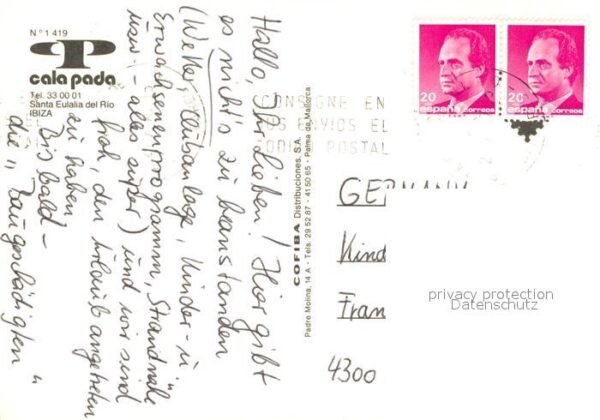 N.º 1 419
cala pada
Tel. 33 00 01
Santa Eulalia del Río
IBIZA
Hallo, Ihr Lieben! Hier gibt
es nichts zu beanstanden
(Wetter, Clubanlage, Kinder- u.
Erwachsenenprogramm, Strandnähe
usw. - alles super) und wir sind
froh, den Urlaub angetreten
zu haben.
Bis bald -
die "Taugeschädigten"
COFIBA Distribuciones, S.A.
Padre Molina, 14 A - Tels. 29 52 87 - 41 50 65 - Palma de Mallorca
CONSIGNE EN
SUS ENVIOS EL
CODIGO POSTAL
20
españa correos
20
españa correos
GERMANY
Kind
Fran
4300
privacy protection
Datenschutz